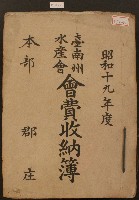 昭和十九年度
臺南州
水產會
會費收納簿
本部　郡　庄